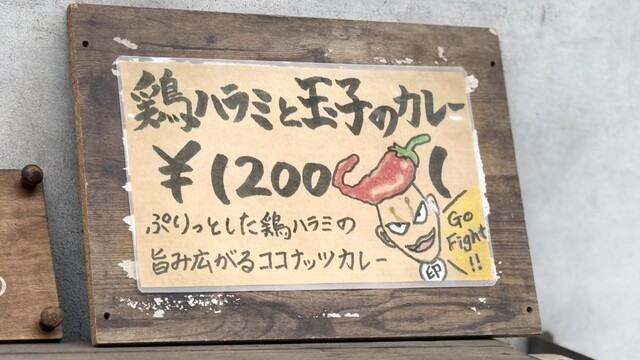 鶏ハラミと玉子のカレー
¥1200
ぷりっとした鶏ハラミの
旨み広がるココナッツカレー
Go
Fight
!!
印